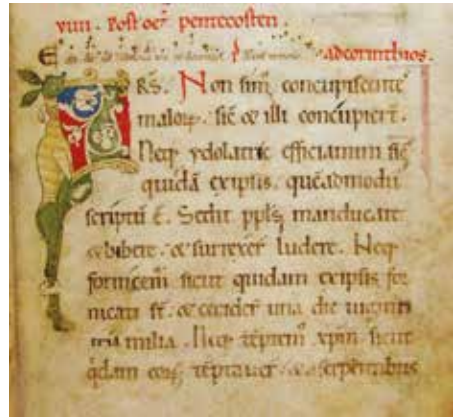 viiii. Post oct pentecosten.
ad corinthios.
FRS. Non sim concupiscente
malor. sic & illi concupier.
Neq ydolatrie efficiamini sic
quida exipsis. queadmodu
scriptu e. Sedit ppls manducare
& bibere. & surrexer ludere. Neq
fornicem sicut quidam exipsis for
nicati st. & cecider una die viginti
tria milia. Neq teptem xpm sicut
qdam eor teptauer. & a serpentibus